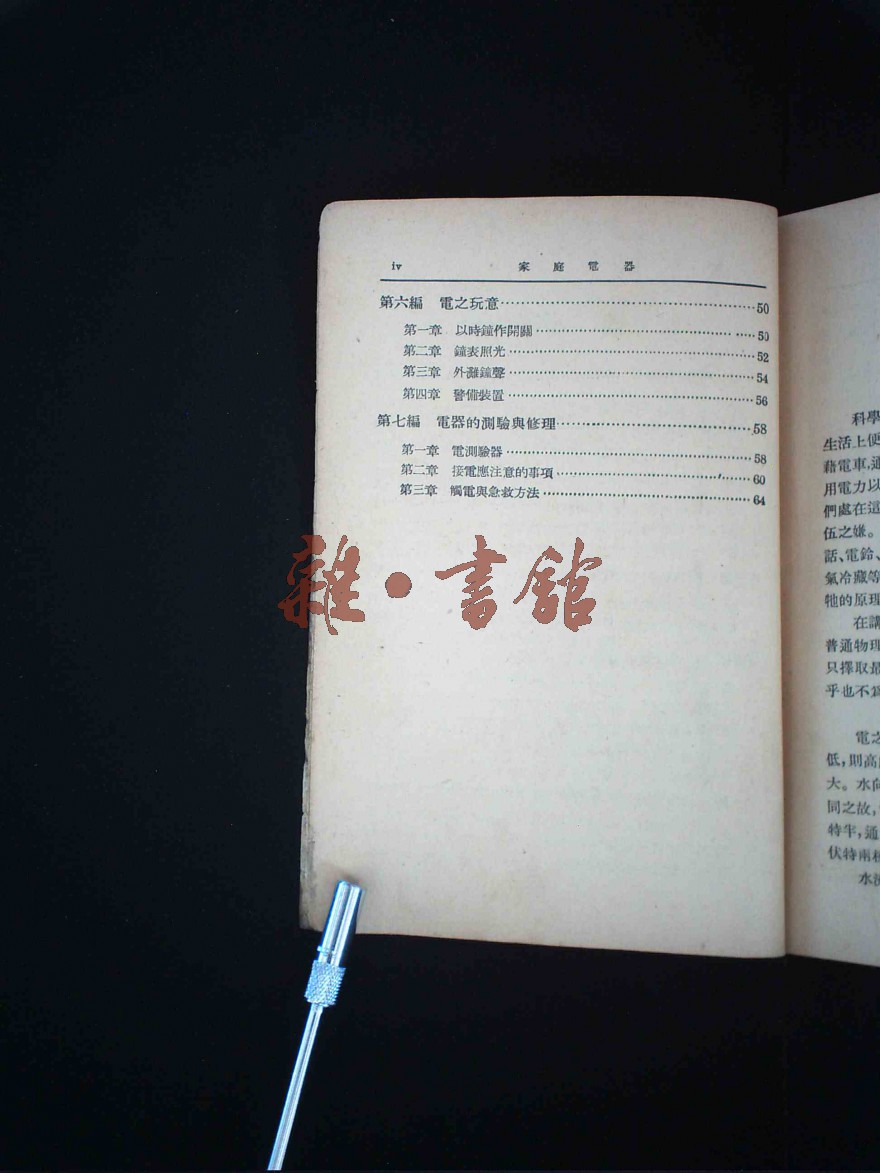 iv 家庭電器
第六編 電之玩意 50
第一章 以時鐘作開關 50
第二章 鐘表照光 52
第三章 外灘鐘聲 54
第四章 警備裝置 56
第七編 電器的測驗與修理 58
第一章 電測驗器 58
第二章 接電應注意的事項 60
第三章 觸電與急救方法 64
雜·書館
科學
生活上便
藉電車,通
用電力以
們處在這
伍之嫌。
話、電鈴、
氣冷藏等
牠的原理
在講
普通物理
只擇取最
乎也不
電之
低,則高
大。水向
同之故,
特牢,通
伏特兩
水